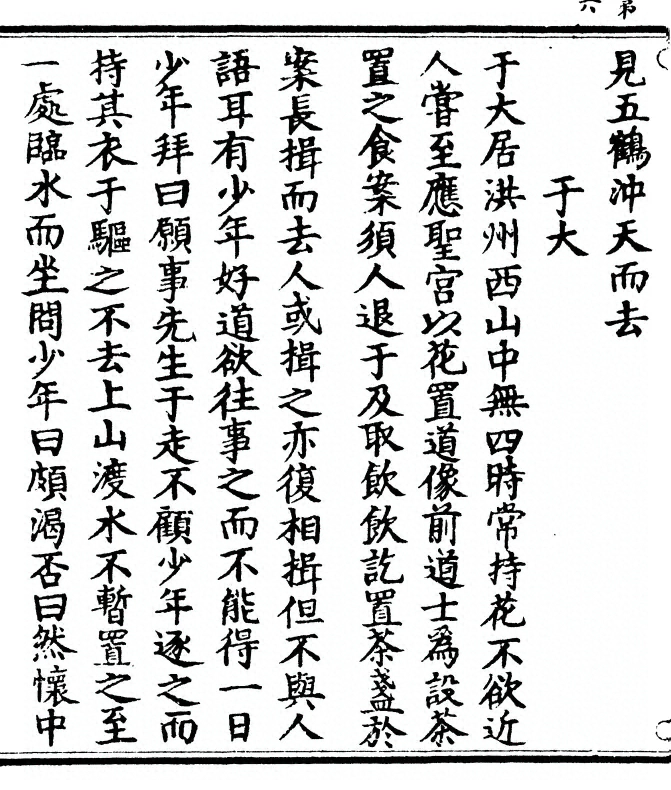 第六
見五鶴沖天而去
于大
于大居洪州西山中無四時常持花不欲近
人嘗至應聖宮以花置道像前道士爲設茶
置之食案須人退于及取飲飲訖置茶盞於
案長揖而去人或揖之亦復相揖但不與人
語耳有少年好道欲往事之而不能得一日
少年拜曰願事先生于走不顧少年逐之而
持其衣于驅之不去上山渡水不暫置之至
一處臨水而坐問少年曰頗渴否曰然懷中